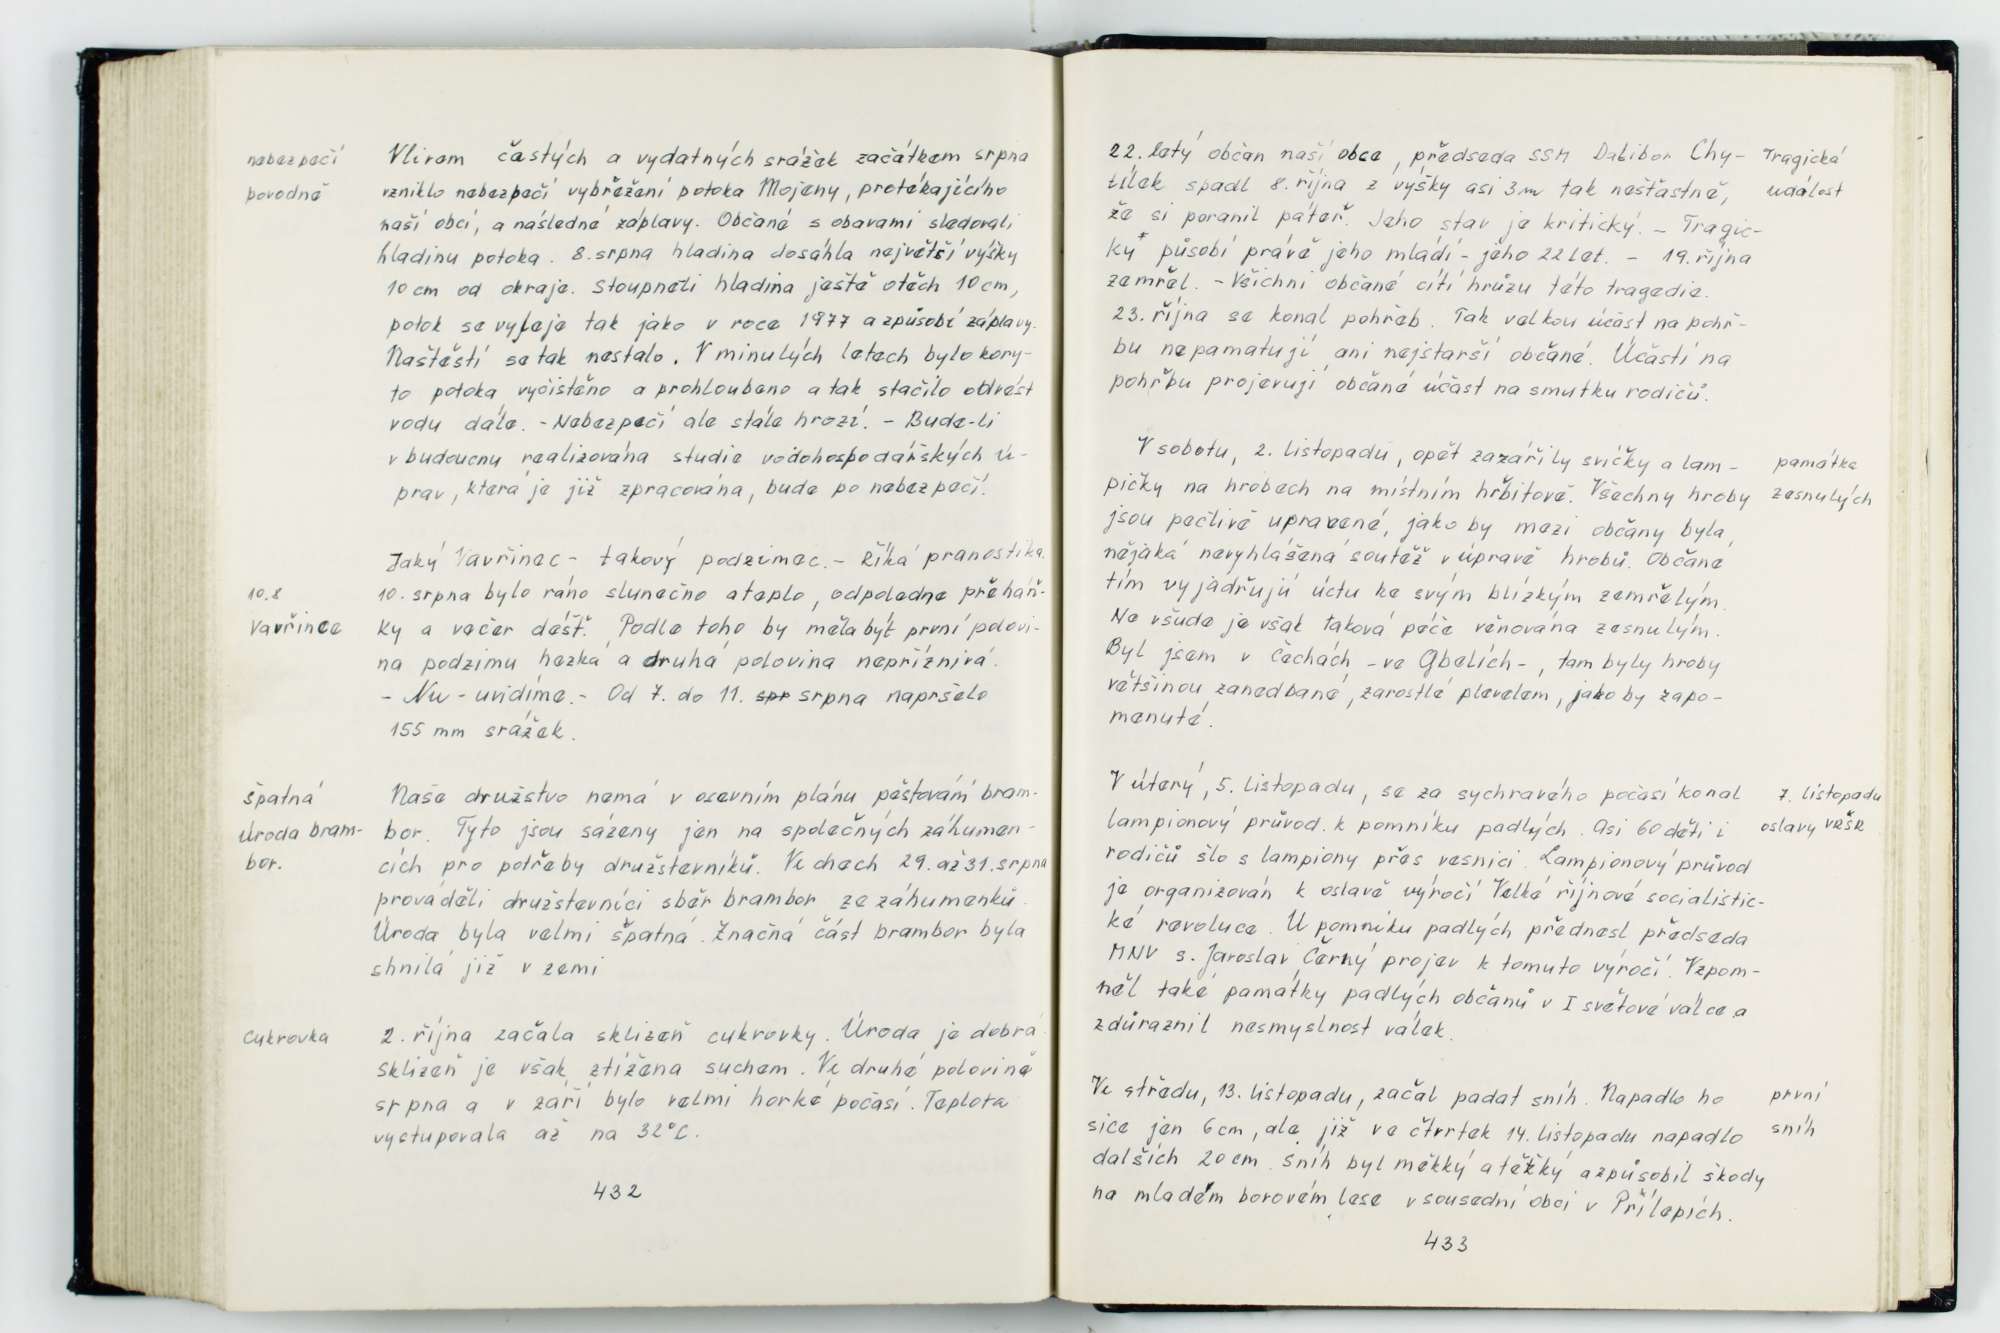 nebezpečí
povodně
Vlivem častých a vydatných srážek začátkem srpna
vzniklo nebezpečí vybřežení potoka Mojeny, protékajícího
naší obcí, a následné záplavy. Občané s obavami sledovali
hladinu potoka. 8. srpna hladina dosáhla největší výšky
10 cm od okraje. Stoupneli hladina ještě otěch 10 cm,
potok se vyleje tak jako v roce 1977 a způsobí záplavy.
Naštěstí se tak nestalo. V minulých letech bylo kory-
to potoka vyčištěno a prohloubeno a tak stačilo odvést
vodu dále. - Nebezpečí ale stále hrozí. - Bude-li
v budoucnu realizována studie vodohospodářských ú-
prav, která je již zpracována, bude po nebezpečí.
Jaký Vavřinec - takový podzimec. - Říká pranostika.
10.8
Vavřinec
10. srpna bylo ráno slunečno a teplo, odpoledne přeháň-
ky a večer déšť. Podle toho by měla být první polovi-
na podzimu hezká a druhá polovina nepříznivá.
- Nu - uvidíme. - Od 7. do 11. spr srpna napršelo
155 mm srážek.
Špatná
úroda bram-
bor.
Naše družstvo nemá v osevním plánu pěstování bram-
bor. Tyto jsou sázeny jen na společných záhumen-
cích pro potřeby družstevníků. Ve dnech 29. až 31. srpna
prováděli družstevníci sběr brambor ze záhumenků.
Úroda byla velmi špatná. Značná část brambor byla
shnilá již v zemi
Cukrovka
2. října začala sklizeň cukrovky. Úroda je dobrá
sklizeň je však ztížena suchem. Ve druhé polovině
srpna a v září bylo velmi horké počasí. Teplota
vystupovala až na 32°C.
432
22. letý občan naší obce, předseda SSM Dalibor Chy-
tílek spadl 8. října z výšky asi 3 m tak nešťastně,
že si poranil páteř. Jeho stav je kritický. - Tragic-
ky působí právě jeho mládí - jeho 22 let. - 19. října
zemřel. - Všichni občané cítí hrůzu této tragedie.
23. října se konal pohřeb. Tak velkou účast na pohř-
bu nepamatují ani nejstarší občané. Účastí na
pohřbu projevují občané účast na smutku rodičů.
Tragická
událost
V sobotu, 2. listopadu, opět zazářily svíčky a lam-
pičky na hrobech na místním hřbitově. Všechny hroby
jsou pečlivě upravené, jako by mezi občany byla
nějaká nevyhlášená soutěž v úpravě hrobů. Občané
tím vyjadřují úctu ke svým blízkým zemřelým.
Ne všude je však taková péče věnována zesnulým.
Byl jsem v Čechách - ve Gbelích -, tam byly hroby
většinou zanedbané, zarostlé plevelem, jako by zapo-
menuté.
památka
zesnulých
V úterý, 5. listopadu, se za sychravého počasí konal
lampionový průvod. k pomníku padlých. Asi 60 dětí i
rodičů šlo s lampiony přes vesnici. Lampionový průvod
je organizován k oslavě výročí Velké říjnové socialistic-
ké revoluce. U pomníku padlých přednesl předseda
MNV s. Jaroslav Černý projev k tomuto výročí. Vzpom-
něl také památky padlých občanů v I světové válce a
zdůraznil nesmyslnost válek.
7. listopadu
oslavy VŘSR
Ve středu, 13. listopadu, začal padat sníh. Napadlo ho
sice jen 6 cm, ale již ve čtvrtek 14. listopadu napadlo
dalších 20 cm. Sníh byl měkký a těžký a způsobil škody
na mladém borovém lese v sousední obci v Přílepích.
první
sníh
433